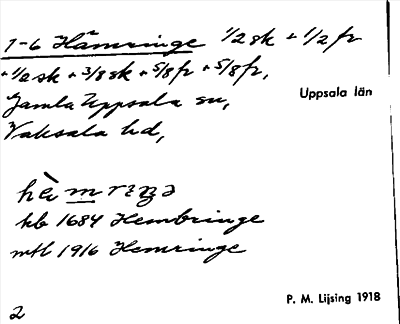 1-6 Hämringe 1/2 sk + 1/2 fr
+ 1/2 sk + 3/8 sk + 5/8 fr + 5/8 fr,
Gamla Uppsala sn,
Uppsala län
Vaksala hd,
hèmrıŋə
kb 1684 Hembringe
mtl 1916 Hemringe
P. M. Lijsing 1918
2